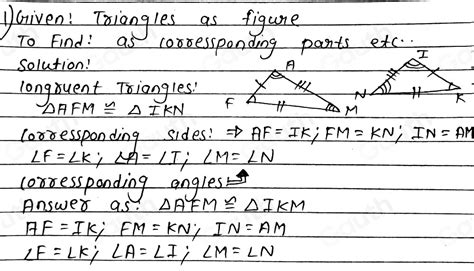 1) Given: Triangles as figure
To Find: as corressponding parts etc..
Solution:
Congruent Triangles:
ΔAFM ≅ ΔIKN
A
F
M
I
N
K
Corressponding sides: ⇒ AF = IK; FM = KN; IN = AM
∠F = ∠K; ∠A = ∠I; ∠M = ∠N
Corressponding angles
Answer as: ΔAFM ≅ ΔIKM
AF = IK; FM = KN; IN = AM
∠F = ∠K; ∠A = ∠I; ∠M = ∠N